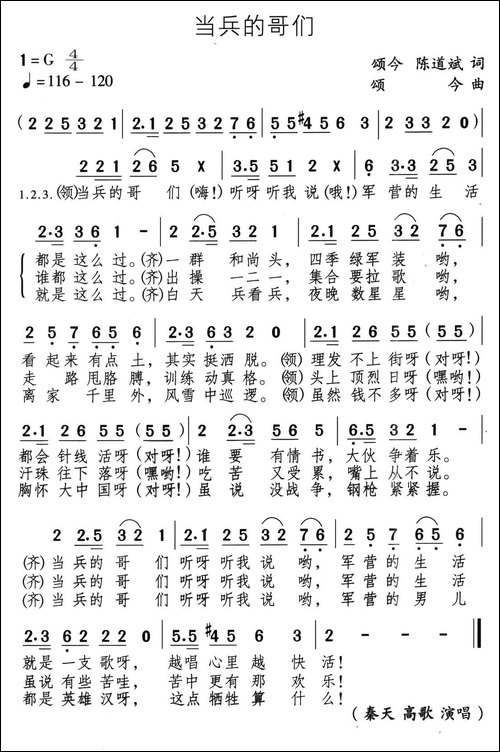 当兵的哥们
1=G 4/4
颂今 陈道斌 词
♩=116-120
颂 今 曲
(2 2 5 3 2 1 | 2·1 2 5 3 2 7 6 | 5 5 #4 5 6 3 | 2 3 3 2 0)
2 2 1 2 6 5 X | 3·5 5 1 2 X | 6 3·3 2 5 3
1.2.3.(领)当兵的哥 们(嗨!)听呀听我说(哦!)军 营的生 活
2·3 3 6 1 - | 2 2 3 2 1 | 2·5 3 2 7 6
都是这么过。(齐)一 群 和尚头, 四季 绿军 装 哟,
谁都这么过。(齐)出 操 一二一, 集合 要拉 歌 哟,
就是这么过。(齐)白 天 兵看兵, 夜晚 数星 星 哟,
2 5 7 6 5 6 | 2·3 6 3 2 0 | 2·1 2 6 5 5 (5 5)
看 起来 有点 土, 其实 挺洒 脱。(领)理发 不上 街呀(对呀!)
走 路 甩胳 膊, 训练 动真 格。(领)头上 顶烈 日呀(嘿哟!)
离 家 千里 外, 风雪 中巡 逻。(领)虽然 钱不 多呀(对呀!)
2·1 2 6 5 5 (5 5) | 2 2·3 5 6 | 6·5 3 2 1 -
都会 针线 活呀(对呀!)谁 要 有情 书, 大伙 争着 乐。
汗珠 往下 落呀(嘿哟!)吃 苦 又受 累, 嘴上 从不 说。
胸怀 大中 国呀(对呀!)虽 说 没战 争, 钢枪 紧紧 握。
2 2·5 3 2 1 | 2·1 2 5 3 2 7 6 | 2 5 7 6 5 6
(齐)当 兵的 哥 们 听呀 听我 说 哟, 军 营的 生 活
(齐)当 兵的 哥 们 听呀 听我 说 哟, 军 营的 生 活
(齐)当 兵的 哥 们 听呀 听我 说 哟, 军 营的 男 儿
2·3 6 2 2 2 0 | 5·5 #4 5 6 3 | 2 - - -
就是 一支 歌呀, 越唱 心里 越 快 活!
虽说 有些 苦哇, 苦中 更有 那 欢 乐!
都是 英雄 汉呀, 这点 牺牲 算 什 么!
(秦天 高歌 演唱)